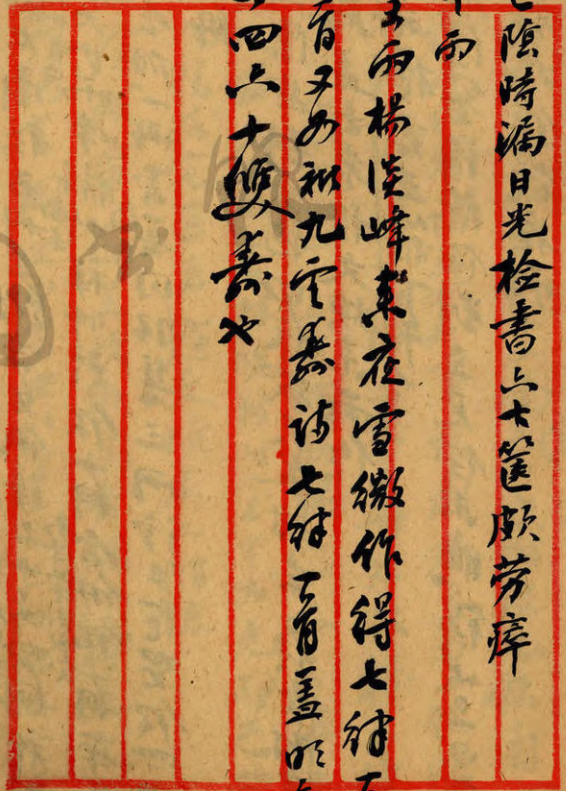 陰時漏日光檢書六七篋頗勞瘁
雨
雨楊淡峰來夜雪微作得七律
首又如和九雲壽詩七律一首蓋明
四六十雙壽也